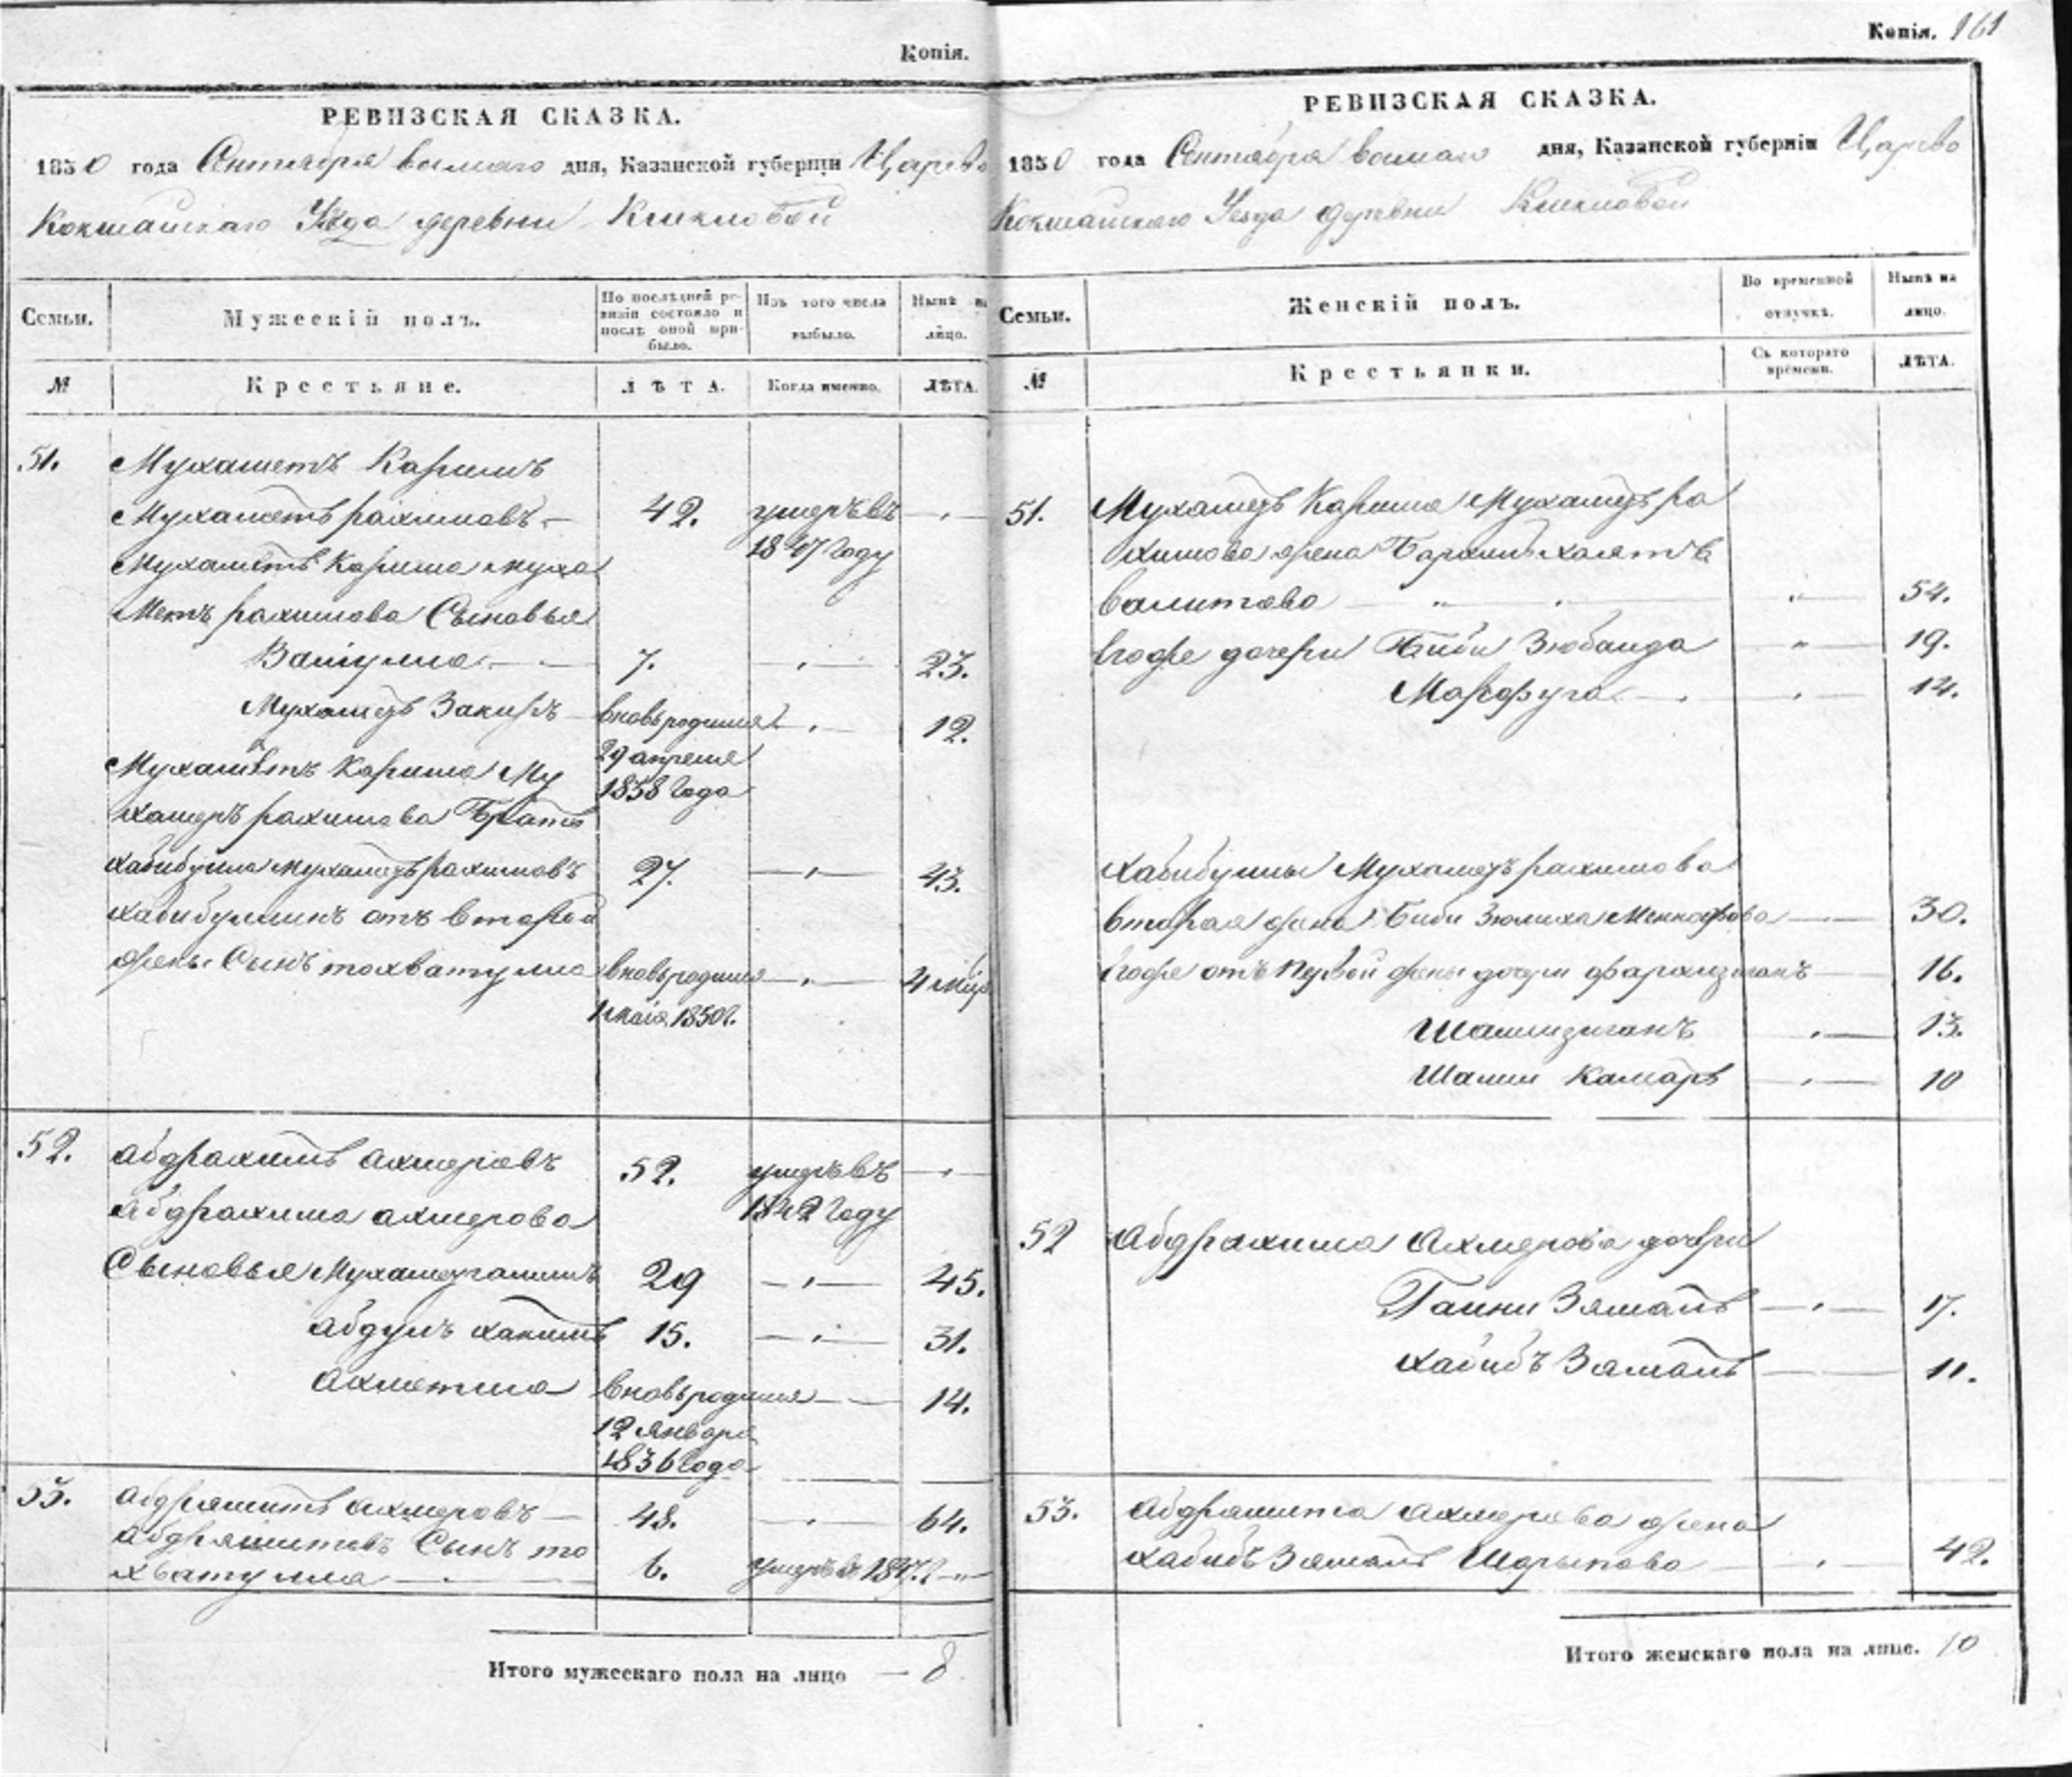 Копія.
РЕВИЗСКАЯ СКАЗКА.
1850 года Сентября восмаго дня, Казанской губерніи Царево
Кокшайскаго Уѣзда деревни
Семьи.
Мужескій полъ.
По послѣдней ревизіи состояло и послѣ оной прибыло.
Изъ того числа выбыло.
Нынѣ на лицо.
№
Крестьяне.
ЛѢТА.
Когда именно.
ЛѢТА.
51.
Мухаметъ Каримъ
Мухаметъ рахимовъ — 42. умеръ въ —
1847 году
Мухаметъ Карима муха
Метъ рахимова Сыновья
Валіулла — 7. — 23.
Мухамедъ Закиръ — вновь родился — 12.
29 апреля
1838 года
Мухаметъ Карима Му
хамедъ рахимова Братъ
хабибулла Мухамедъ рахимовъ 27. — 43.
хабибуллинъ отъ второй
жены Сынъ тохватулла вновь родился — 4 мѣс
1 маія 1850 г.
52. абдрахимъ ахмеровъ 52. умеръ въ —
1842 году
абдрахима ахмерова
Сыновья Мухамедгалимъ 29 — 45.
абдулъ хакимъ 15. — 31.
ахметша вновь родился — 14.
12 Января
1836 года
53. абдрашитъ ахмеровъ — 48. — 64.
абдрашитовъ Сынъ то
хватулла — 6. умеръ въ 1847 г —
Итого мужескаго пола на лицо — 8
Копія. 161
РЕВИЗСКАЯ СКАЗКА.
1850 года Сентября восмаго дня, Казанской губерніи Царево
Кокшайскаго Уезда деревни
Семьи.
Женскій полъ.
Во временной отлучкѣ.
Нынѣ на лицо.
№
Крестьянки.
Съ котораго времени.
ЛѢТА.
51. Мухамедъ Карима Мухамедъ ра
химова жена
валитова — 54.
Ево же дочери Биби Зюбаида — 19.
Марфуга — 14.
хабибуллы Мухамедъ рахимова
вторая жена Биби Зюлиха — 30.
Ево же отъ первой жены дочери — 16.
Шамсизиганъ — 13.
Шамси Камаръ — 10
52 Абдрахима Ахмерова дочери
Гайни Зямалъ — 17.
хабибъ Зямалъ — 11.
53. абдрашита ахмерова жена
хабибъ Зямалъ Шарыпова — 42.
Итого женскаго пола на лице. 10